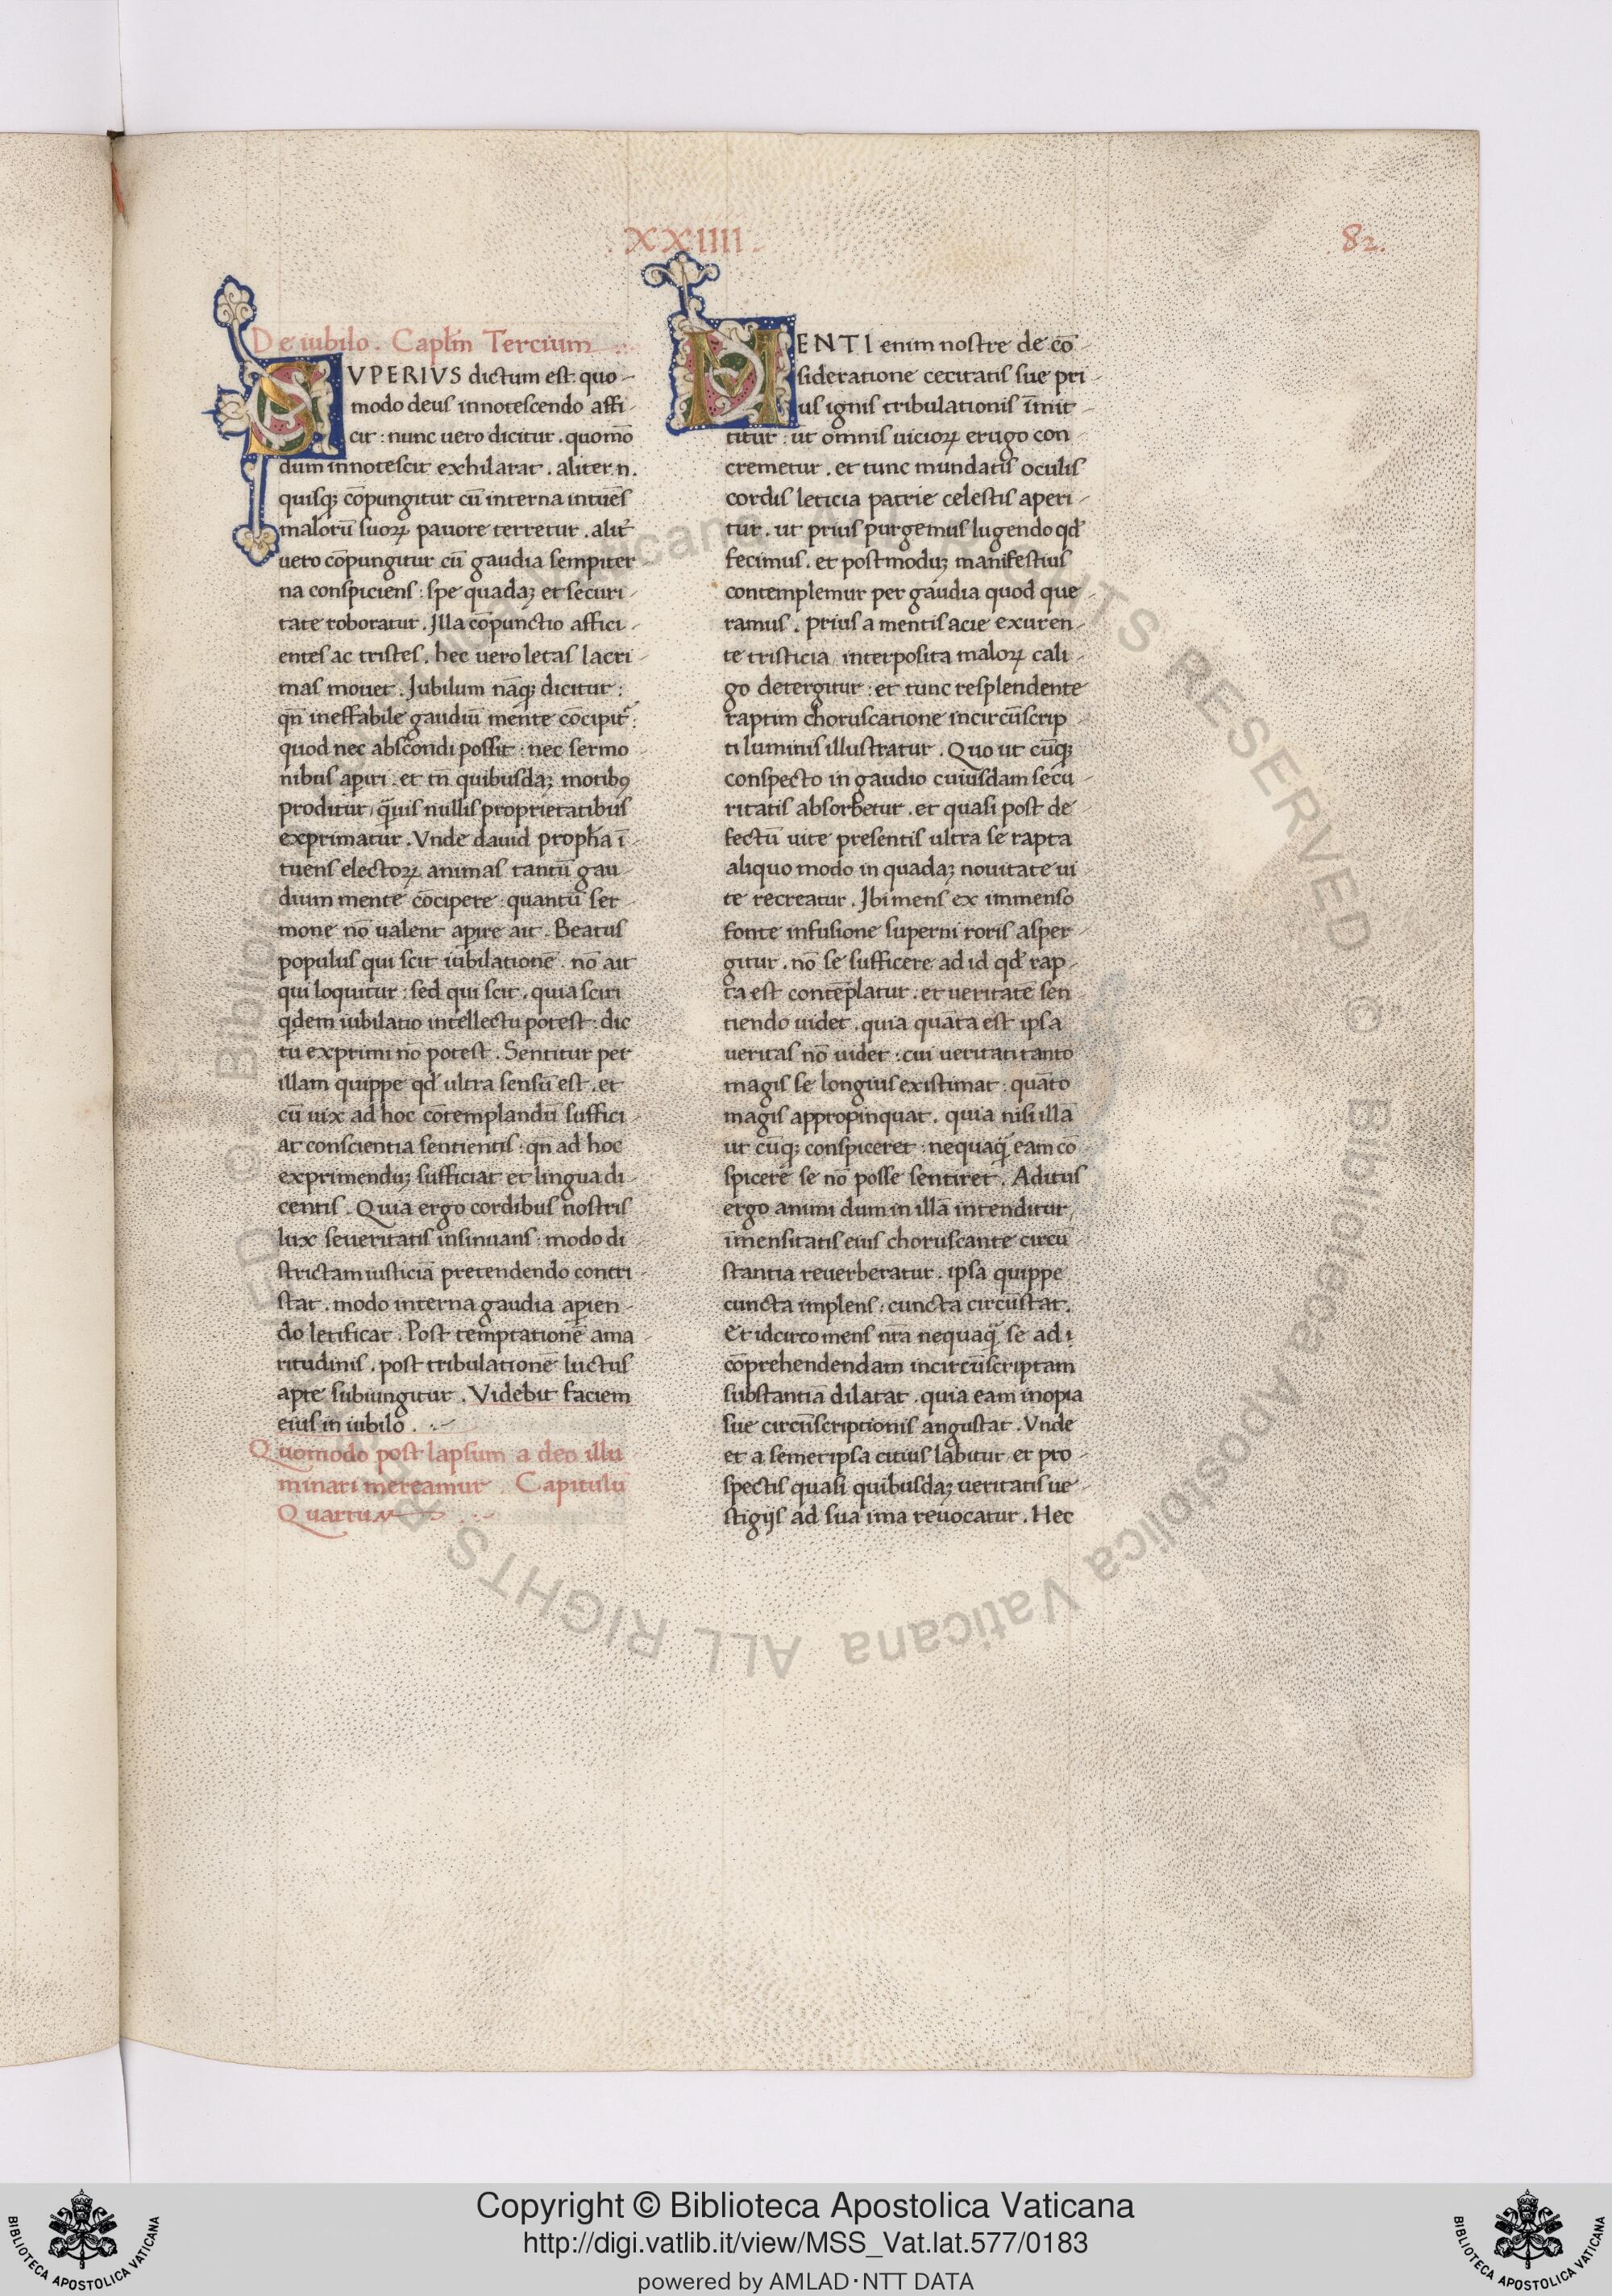 .XXIIII.
82.
De iubilo. Capłm Tercium
SVPERIVS dictum est: quo-
modo deus innotescendo affi-
cit: nunc uero dicitur. quomō
dum innotescit exhilarat. aliter.n.
quisqꝫ cōpungitur cū interna intuēs
malorū suoꝝ pauore terretur. alit͛
uero cōpungitur cū gaudia sempiter
na conspiciens: spe quadaꝫ et securi-
tate roboratur. Illa cōpunctio affici-
entes ac tristes. hec uero letas lacri-
mas mouet. Iubilum nāqꝫ dicitur:
qn̄ ineffabile gaudiū mente cōcipit͛:
quod nec abscōndi possit: nec sermo-
nibus aꝑiri: et tn̄ quibusdaꝫ motibꝯ
proditur, q̄uis nullis proprietatibus
exprimatur. Vnde dauid propħa ī-
tuens electoꝝ animas tantū gau-
dium mente cōcipere: quantū ser-
mone nō ualent aꝑire ait. Beatus
populus qui scit iubilationē. nō ait
qui loquitur: sed qui scit. quia sciri
qdem iubilatio intellectu potest: dic
tu exprimi nō potest. Sentitur per
illam quippe qď ultra sensū est. et
cū uix ad hoc cōtemplandū suffici-
at conscientia sentientis: qn̄ ad hoc
exprimenduꝫ sufficiat et lingua di-
centis. Quia ergo cordibus nostris
lux seueritatis insinuans: modo di
strictam iusticiā pretendendo contri-
stat. modo interna gaudia aꝑien-
do letificat. Post temptationē ama-
ritudinis. post tribulationē luctus
apte subiungitur. Videbit faciem
eius in iubilo.
Quomodo post lapsum a deo illu
minari mereamur. Capitulū
Quartum
MENTI enim nostre de cō
sideratione cecitatis sue pri-
us ignis tribulationis īmit-
titur: ut omnis uicioꝝ erugo con-
cremetur. et tunc mundatis oculis
cordis leticia patrie celestis aperi-
tur. ut prius purgemus lugendo qď
fecimus. et postmoduꝫ manifestius
contemplemur per gaudia quod que-
ramus. prius a mentis acie exuren-
te tristicia interposita maloꝝ cali-
go detergitur: et tunc resplendente
raptim choruscatione incircūscrip-
ti luminis illustratur. Quo ut cūqꝫ
conspecto in gaudio cuiusdam secu-
ritatis absorbetur. et quasi post de-
fectū uite presentis ultra se rapta
aliquo modo in quadaꝫ nouitate ui
te recreatur. Ibi mens ex immenso
fonte infusione superni roris asper-
gitur. nō se sufficere ad id qď rap-
ta est contēplatur. et ueritatē sen-
tiendo uidet. quia quāta est ipsa
ueritas nō uidet: cui ueritati tanto
magis se longius existimat: quāto
magis appropinquat. quia nisi illā
ut cūqꝫ conspiceret: nequaq̄ eam cō
spicere se nō posse sentiret. Aditus
ergo animi dum in illā intenditur,
īmensitatis eius choruscante circū
stantia reuerberatur. ipsa quippe
cuncta implens: cuncta circūstat.
Et idcirco mens nrā nequaq̄ se ad i
cōprehendendam incircūscriptam
substantiā dilatat. quia eam inopia
sue circūscriptionis angustat. Vnde
et a semetipsa citius labitur, et pro-
spectis quasi quibusdaꝫ ueritatis ue-
stigijs ad sua ima reuocatur. Hec
© Biblioteca Apostolica Vaticana ALL RIGHTS RESERVED
Copyright © Biblioteca Apostolica Vaticana
http://digi.vatlib.it/view/MSS_Vat.lat.577/0183
powered by AMLAD·NTT DATA
BIBLIOTECA APOSTOLICA VATICANA
BIBLIOTECA APOSTOLICA VATICANA